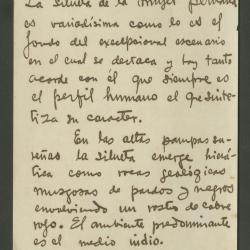 La silueta de la mujer peruana
es variadísima como lo es el
fondo del excepcional escenario
en el cual se destaca y hay tanto
acorde con él que siempre es
el perfil humano el que sinte-
tiza su caracter.
En las altas pampas su-
reñas la silueta emerge hierá-
tica como rocas geológicas
musgosas de pardos y negros
envolviendo un rostro de cobre
rojo. El ambiente predominante
es el medio indio.